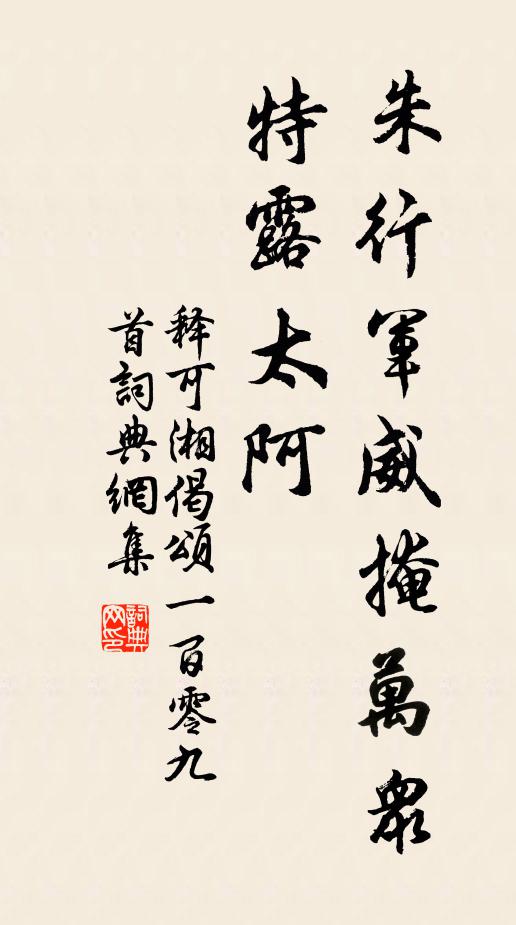 朱行軍威掩萬眾
特露太阿
释可湘偈頌一百零九
首詞典網集
詞典网印